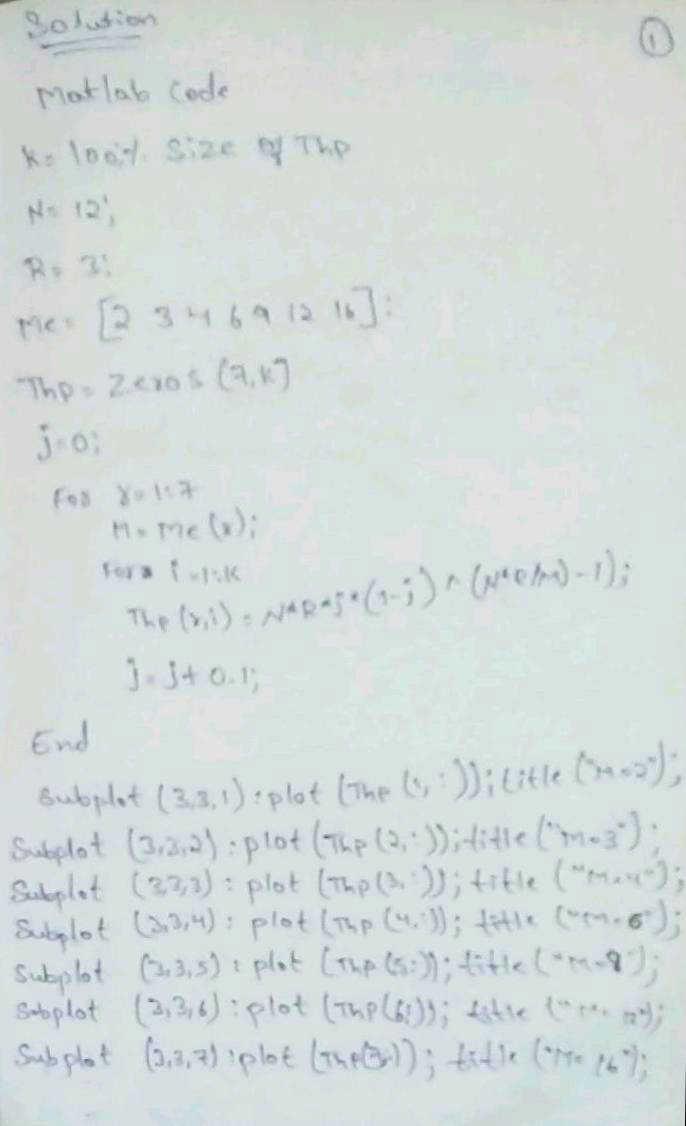 Solution
1
Matlab Code
K= 100;% Size of Thp
N= 12;
R= 3;
Me= [2 3 4 6 9 12 16];
Thp= Zeros (7,K]
j=0;
For r=1:7
M= Me (r);
For i=1:K
Thp (r,i) = N*R*j*(1-j) ^ (N*R/M)-1);
j=j+0.1;
End
Subplot (3,3,1):plot (Thp (1, :)); title ("M=2");
Subplot (3,3,2):plot (Thp (2,:)); title ("M=3");
Subplot (3,3,3): plot (Thp (3,:)); title ("M=4");
Subplot (3,3,4): plot (Thp (4,:)); title ("M=6");
Subplot (3,3,5): plot (Thp (5:)); title ("M=9");
Subplot (3,3,6):plot (Thp(6:)); title ("M= 12");
Subplot (3,3,7):plot (Thp(7,:)); title ("M= 16");